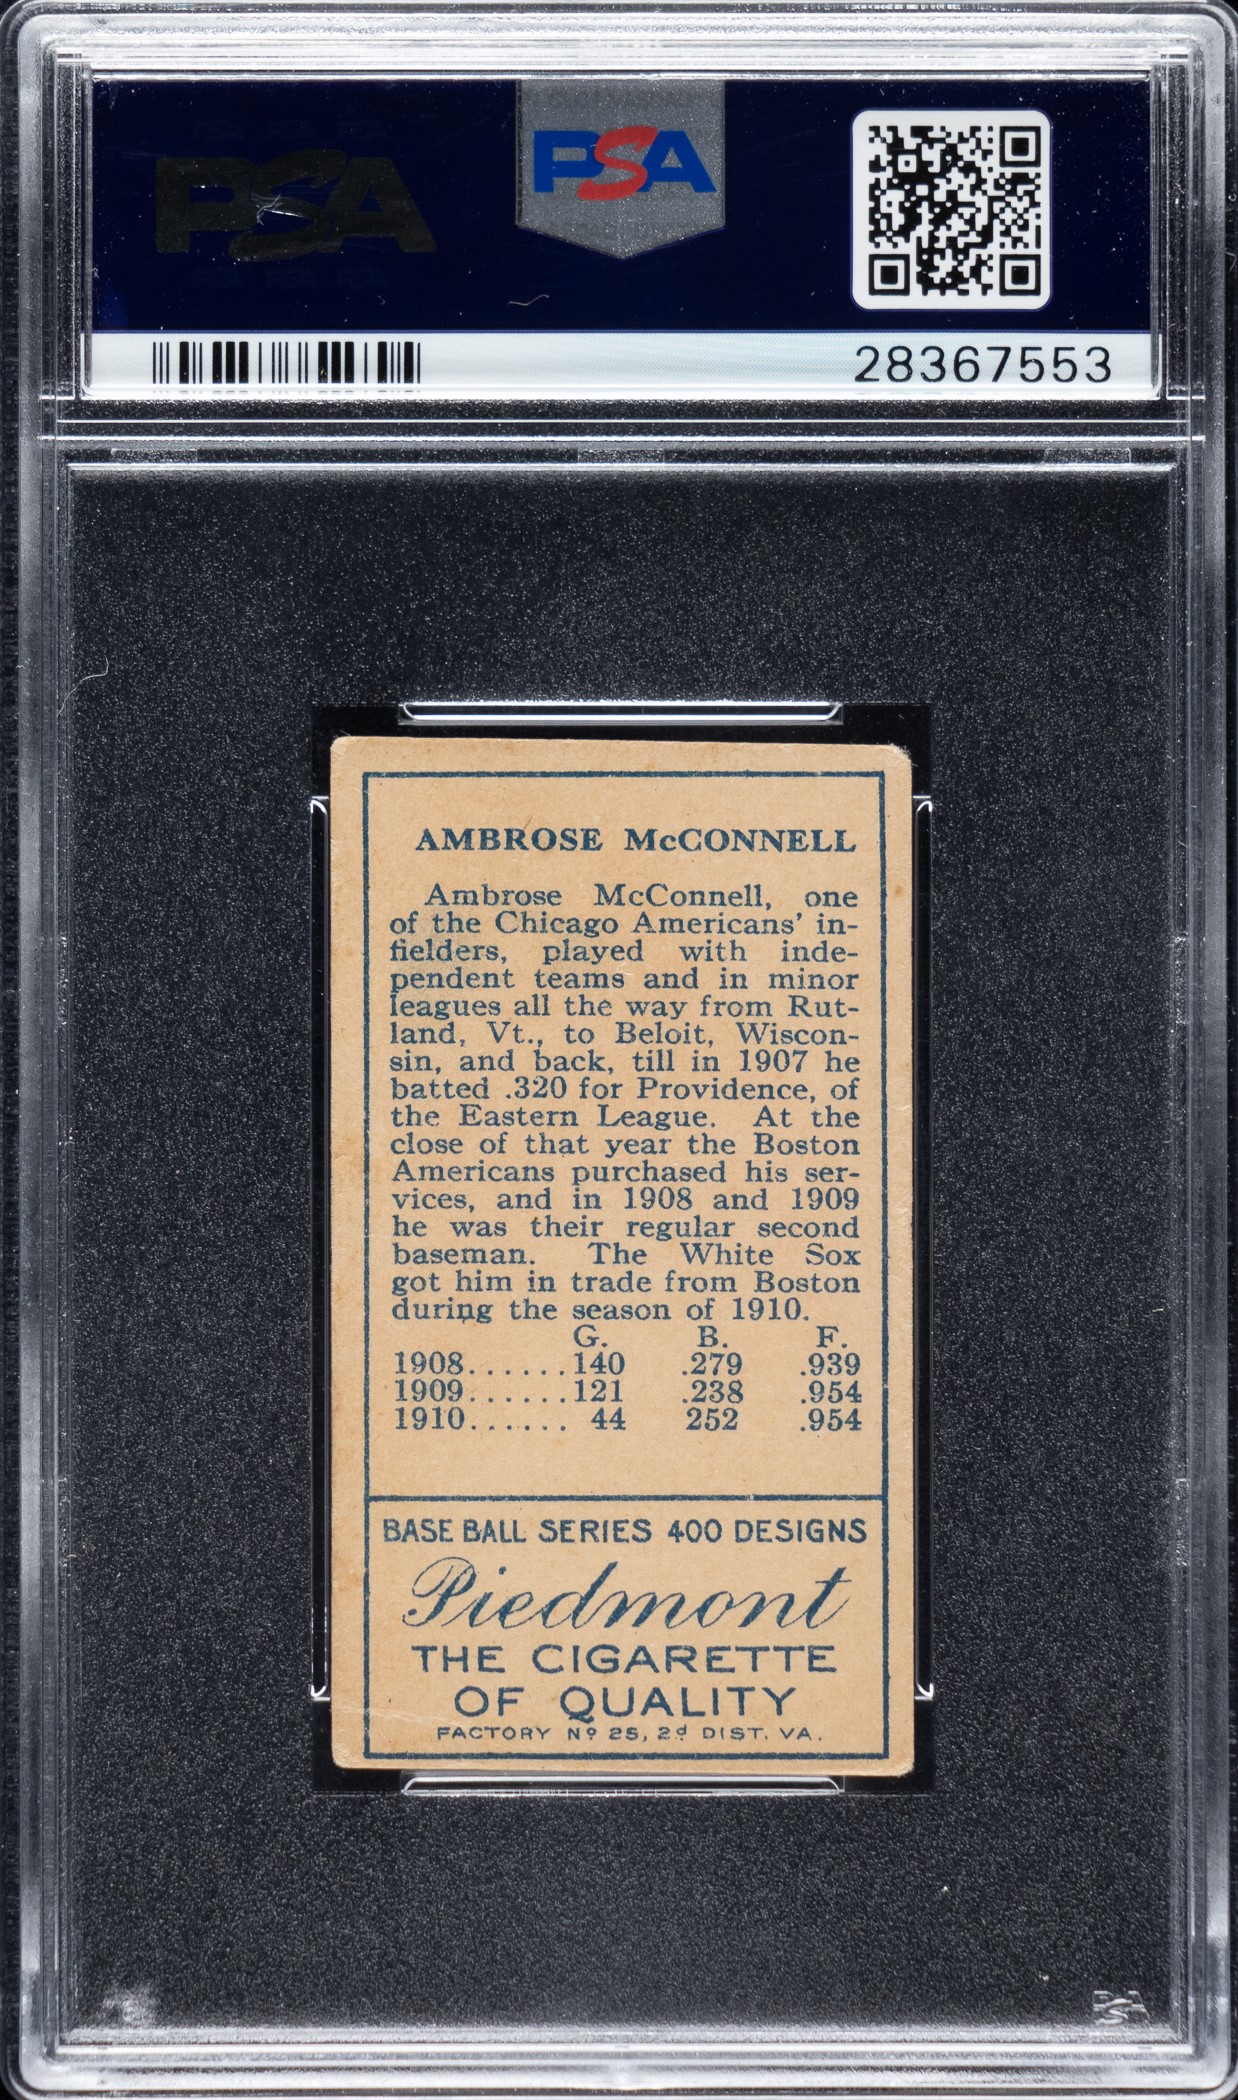 PSA
PSA
28367553
AMBROSE McCONNELL
Ambrose McConnell, one
of the Chicago Americans' in-
fielders, played with inde-
pendent teams and in minor
leagues all the way from Rut-
land, Vt., to Beloit, Wiscon-
sin, and back, till in 1907 he
batted .320 for Providence, of
the Eastern League. At the
close of that year the Boston
Americans purchased his ser-
vices, and in 1908 and 1909
he was their regular second
baseman. The White Sox
got him in trade from Boston
during the season of 1910.
G. B. F.
1908......140 .279 .939
1909......121 .238 .954
1910...... 44 252 .954
BASE BALL SERIES 400 DESIGNS
Piedmont
THE CIGARETTE
OF QUALITY
FACTORY Nº 25, 2d DIST. VA.
PSA